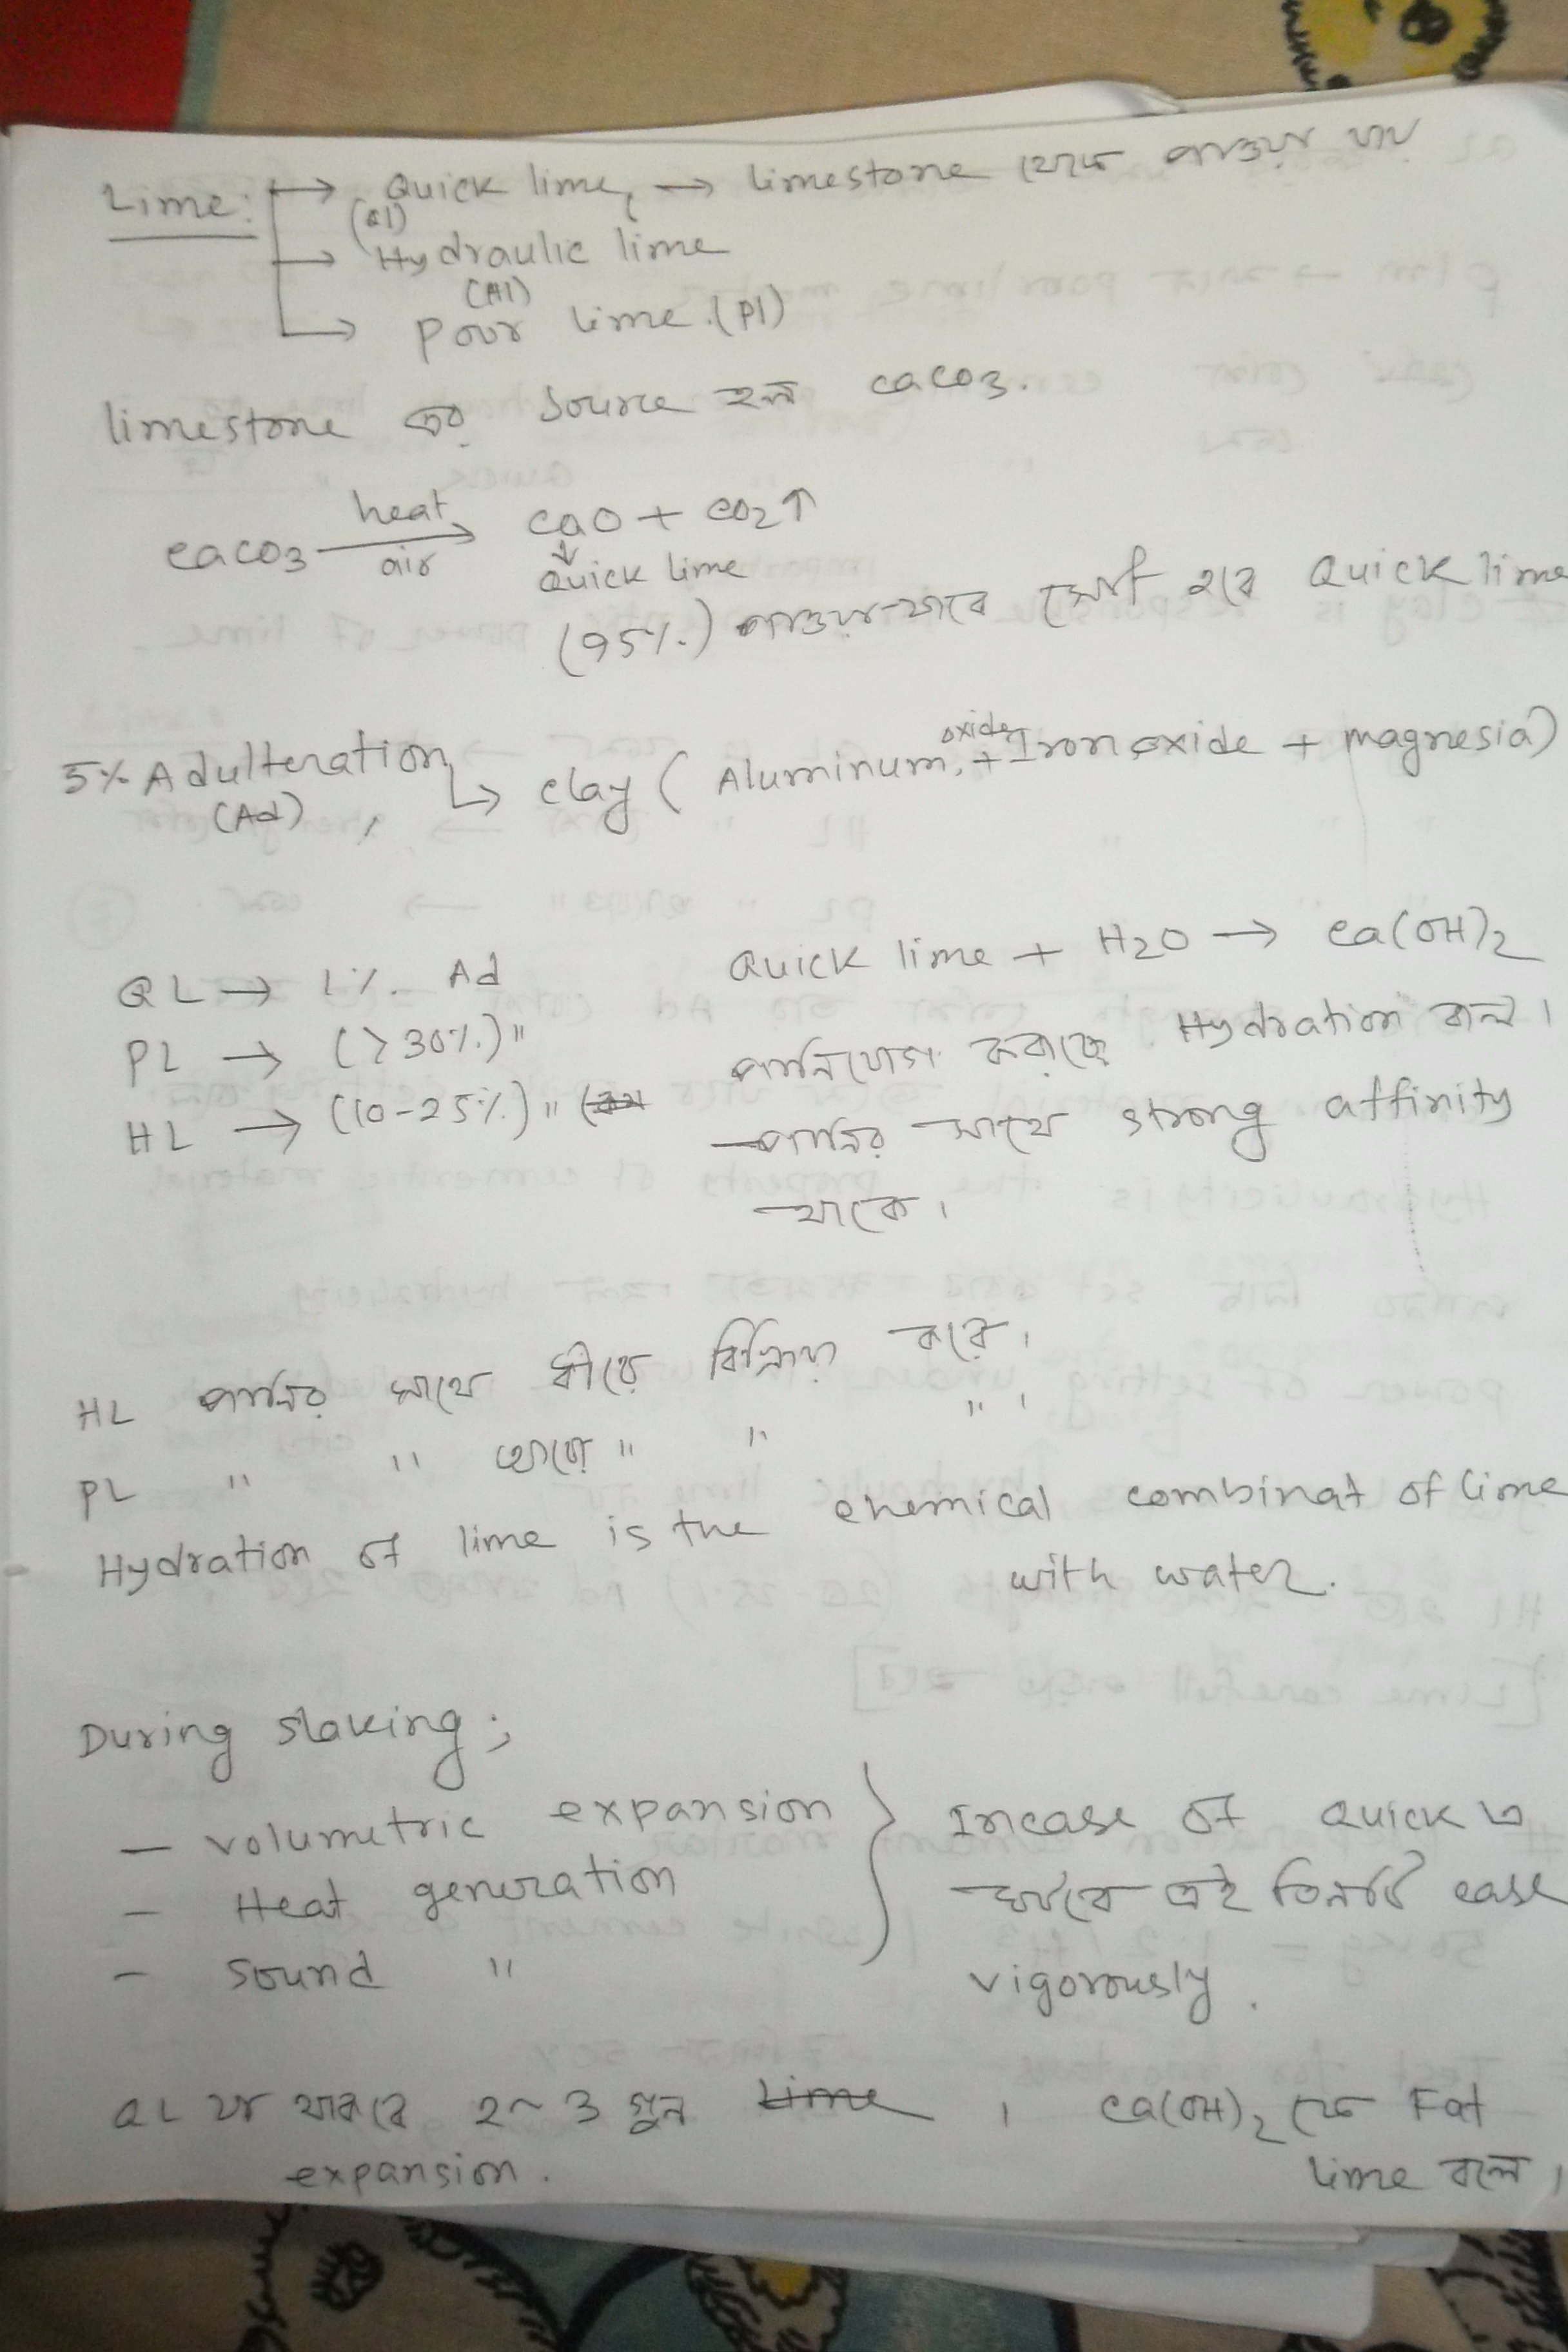 Lime: → Quick lime, → limestone থেকে পাওয়া যায়
(Ql)
→ Hydraulic lime
(Hl)
→ Poor lime. (Pl)
limestone এর source হল caco3.
caco3 heat air → cao + co2↑
↓
Quick lime
(95%) পাওয়া যাবে সেটা হবে Quick lime
5% Adulteration ↳ clay ( Aluminum oxide, + Iron oxide + magnesia)
(Ad) ,
QL → 1%. Ad
PL → (>30%.) "
HL → (10-25%.) " (
Quick lime + H2O → ca(OH)2
পানিযোগ করাকে Hydration বলে।
পানির সাথে strong affinity
থাকে।
HL পানির সাথে ধীরে বিক্রিয়া করে।
PL " " " " " ।
Hydration of lime is the chemical combinat of lime
with water.
During slaking;
— volumetric expansion
— Heat generation
— Sound "
} Incase of Quick
ঘটবে এই তিনটি case
vigorously.
QL এর থাকবে 2~3 গুন Lime expansion.
। ca(OH)2 কে Fat
lime বলে।